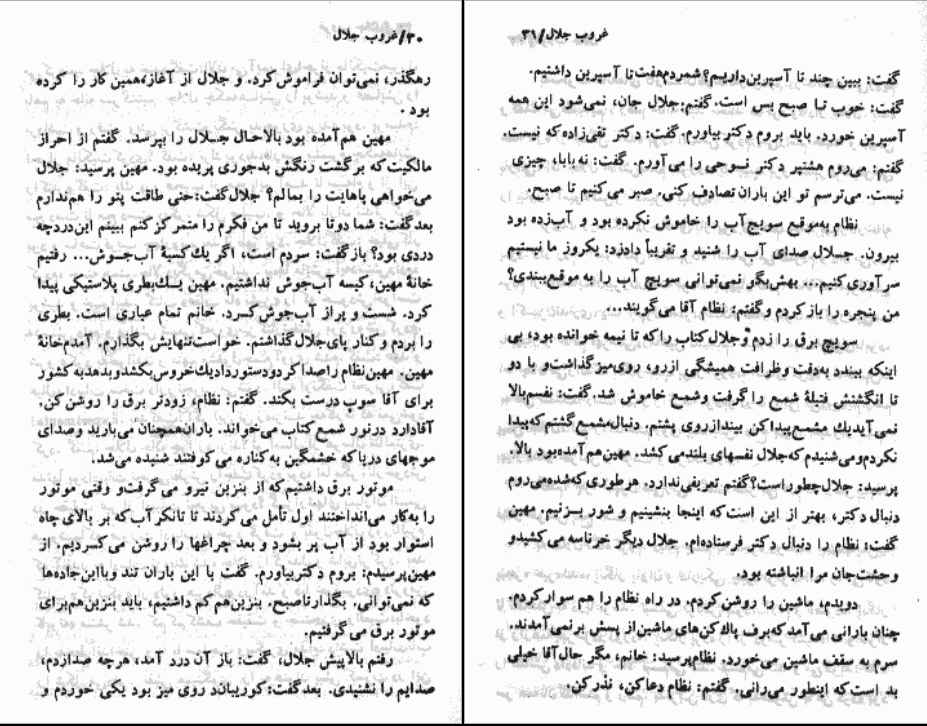 ۳۰/غروب جلال
رهگذر، نمی‌توان فراموش کرد. و جلال از آغاز، همین کار را کرده
بود.
مهین هم آمده بود بالا حال جلال را بپرسد. گفتم از احراز
مالکیت که برگشت رنگش بدجوری پریده بود. مهین پرسید: جلال
می‌خواهی پاهایت را بمالم؟ جلال گفت: حتی طاقت پتو را هم ندارم
بعد گفت: شما دوتا بروید تا من فکرم را متمرکز کنم ببینم این درد چه
دردی بود؟ باز گفت: سردم است، اگر یك کیسهٔ آب جوش... رفتیم
خانهٔ مهین، کیسه آب جوش نداشتیم. مهین یك بطری پلاستیکی پیدا
کرد. شست و پر از آب جوش کرد. خانم تمام عیاری است. بطری
را بردم و کنار پای جلال گذاشتم. خواست تنهایش بگذارم. آمدم خانهٔ
مهین. مهین نظام را صدا کرد و دستور داد یك خروس بکشد و بدهد به کشور
برای آقا سوپ درست بکند. گفتم: نظام، زودتر برق را روشن کن.
آقا دارد در نور شمع کتاب می‌خواند. باران همچنان می‌بارید و صدای
موجهای دریا که خشمگین به کناره می‌کوفتند شنیده می‌شد.
موتور برق داشتیم که از بنزین نیرو می‌گرفت و وقتی موتور
را به کار می‌انداختند اول تأمل می‌کردند تا تانکر آب که بر بالای چاه
استوار بود از آب پر بشود و بعد چراغها را روشن می‌کردیم. از
مهین پرسیدم: بروم دکتر بیاورم. گفت با این باران تند و با این جاده‌ها
که نمی‌توانی. بگذار تا صبح. بنزین هم کم داشتیم، باید بنزین هم برای
موتور برق می‌گرفتیم.
رفتم بالا پیش جلال، گفت: باز آن درد آمد، هرچه صدا زدم،
صدایم را نشنیدی. بعد گفت: کوریبان د روی میز بود یکی خوردم و
غروب جلال/۳۱
گفت: ببین چند تا آسپرین داریم؟ شمردم هفت تا آسپرین داشتیم.
گفت: خوب تا صبح بس است. گفتم: جلال جان، نمی‌شود این همه
آسپرین خورد. باید بروم دکتر بیاورم. گفت: دکتر تقی‌زاده که نیست.
گفتم: می‌روم هشتپر دکتر نسوحی را می‌آورم. گفت: نه بابا، چیزی
نیست. می‌ترسم تو این باران تصادف کنی. صبر می‌کنیم تا صبح.
نظام به موقع سویچ آب را خاموش نکرده بود و آب زده بود
بیرون. جلال صدای آب را شنید و تقریباً داد زد: یکروز ما نیستیم
سرآوری کنیم... بهش بگو نمی‌توانی سویچ آب را به موقع ببندی؟
من پنجره را باز کردم و گفتم: نظام آقا می‌گویند...
سویچ برق را زدم و جلال کتاب را که تا نیمه خوانده بود، بی
اینکه ببندد به دقت و ظرافت همیشگی از رو، روی میز گذاشت و با دو
تا انگشتش فتیلهٔ شمع را گرفت و شمع خاموش شد. گفت: نفسم بالا
نمی‌آید یك مشمع پیدا کن بینداز روی پشتم. دنبال مشمع گشتم که پیدا
نکردم و می‌شنیدم که جلال نفسهای بلند می‌کشد. مهین هم آمده بود بالا.
پرسید: جلال چطور است؟ گفتم تعریفی ندارد. هر طوری که شده می‌روم
دنبال دکتر، بهتر از این است که اینجا بنشینیم و شور بزنیم. مهین
گفت: نظام را دنبال دکتر فرستاده‌ام. جلال دیگر خرناسه می‌کشید و
وحشت جان مرا انباشته بود.
دویدم، ماشین را روشن کردم. در راه نظام را هم سوار کردم.
چنان بارانی می‌آمد که برف پاك کن‌های ماشین از پسش برنمی‌آمدند.
سرم به سقف ماشین می‌خورد. نظام پرسید: خانم، مگر حال آقا خیلی
بد است که اینطور می‌رانی. گفتم: نظام دعا کن، نذر کن.